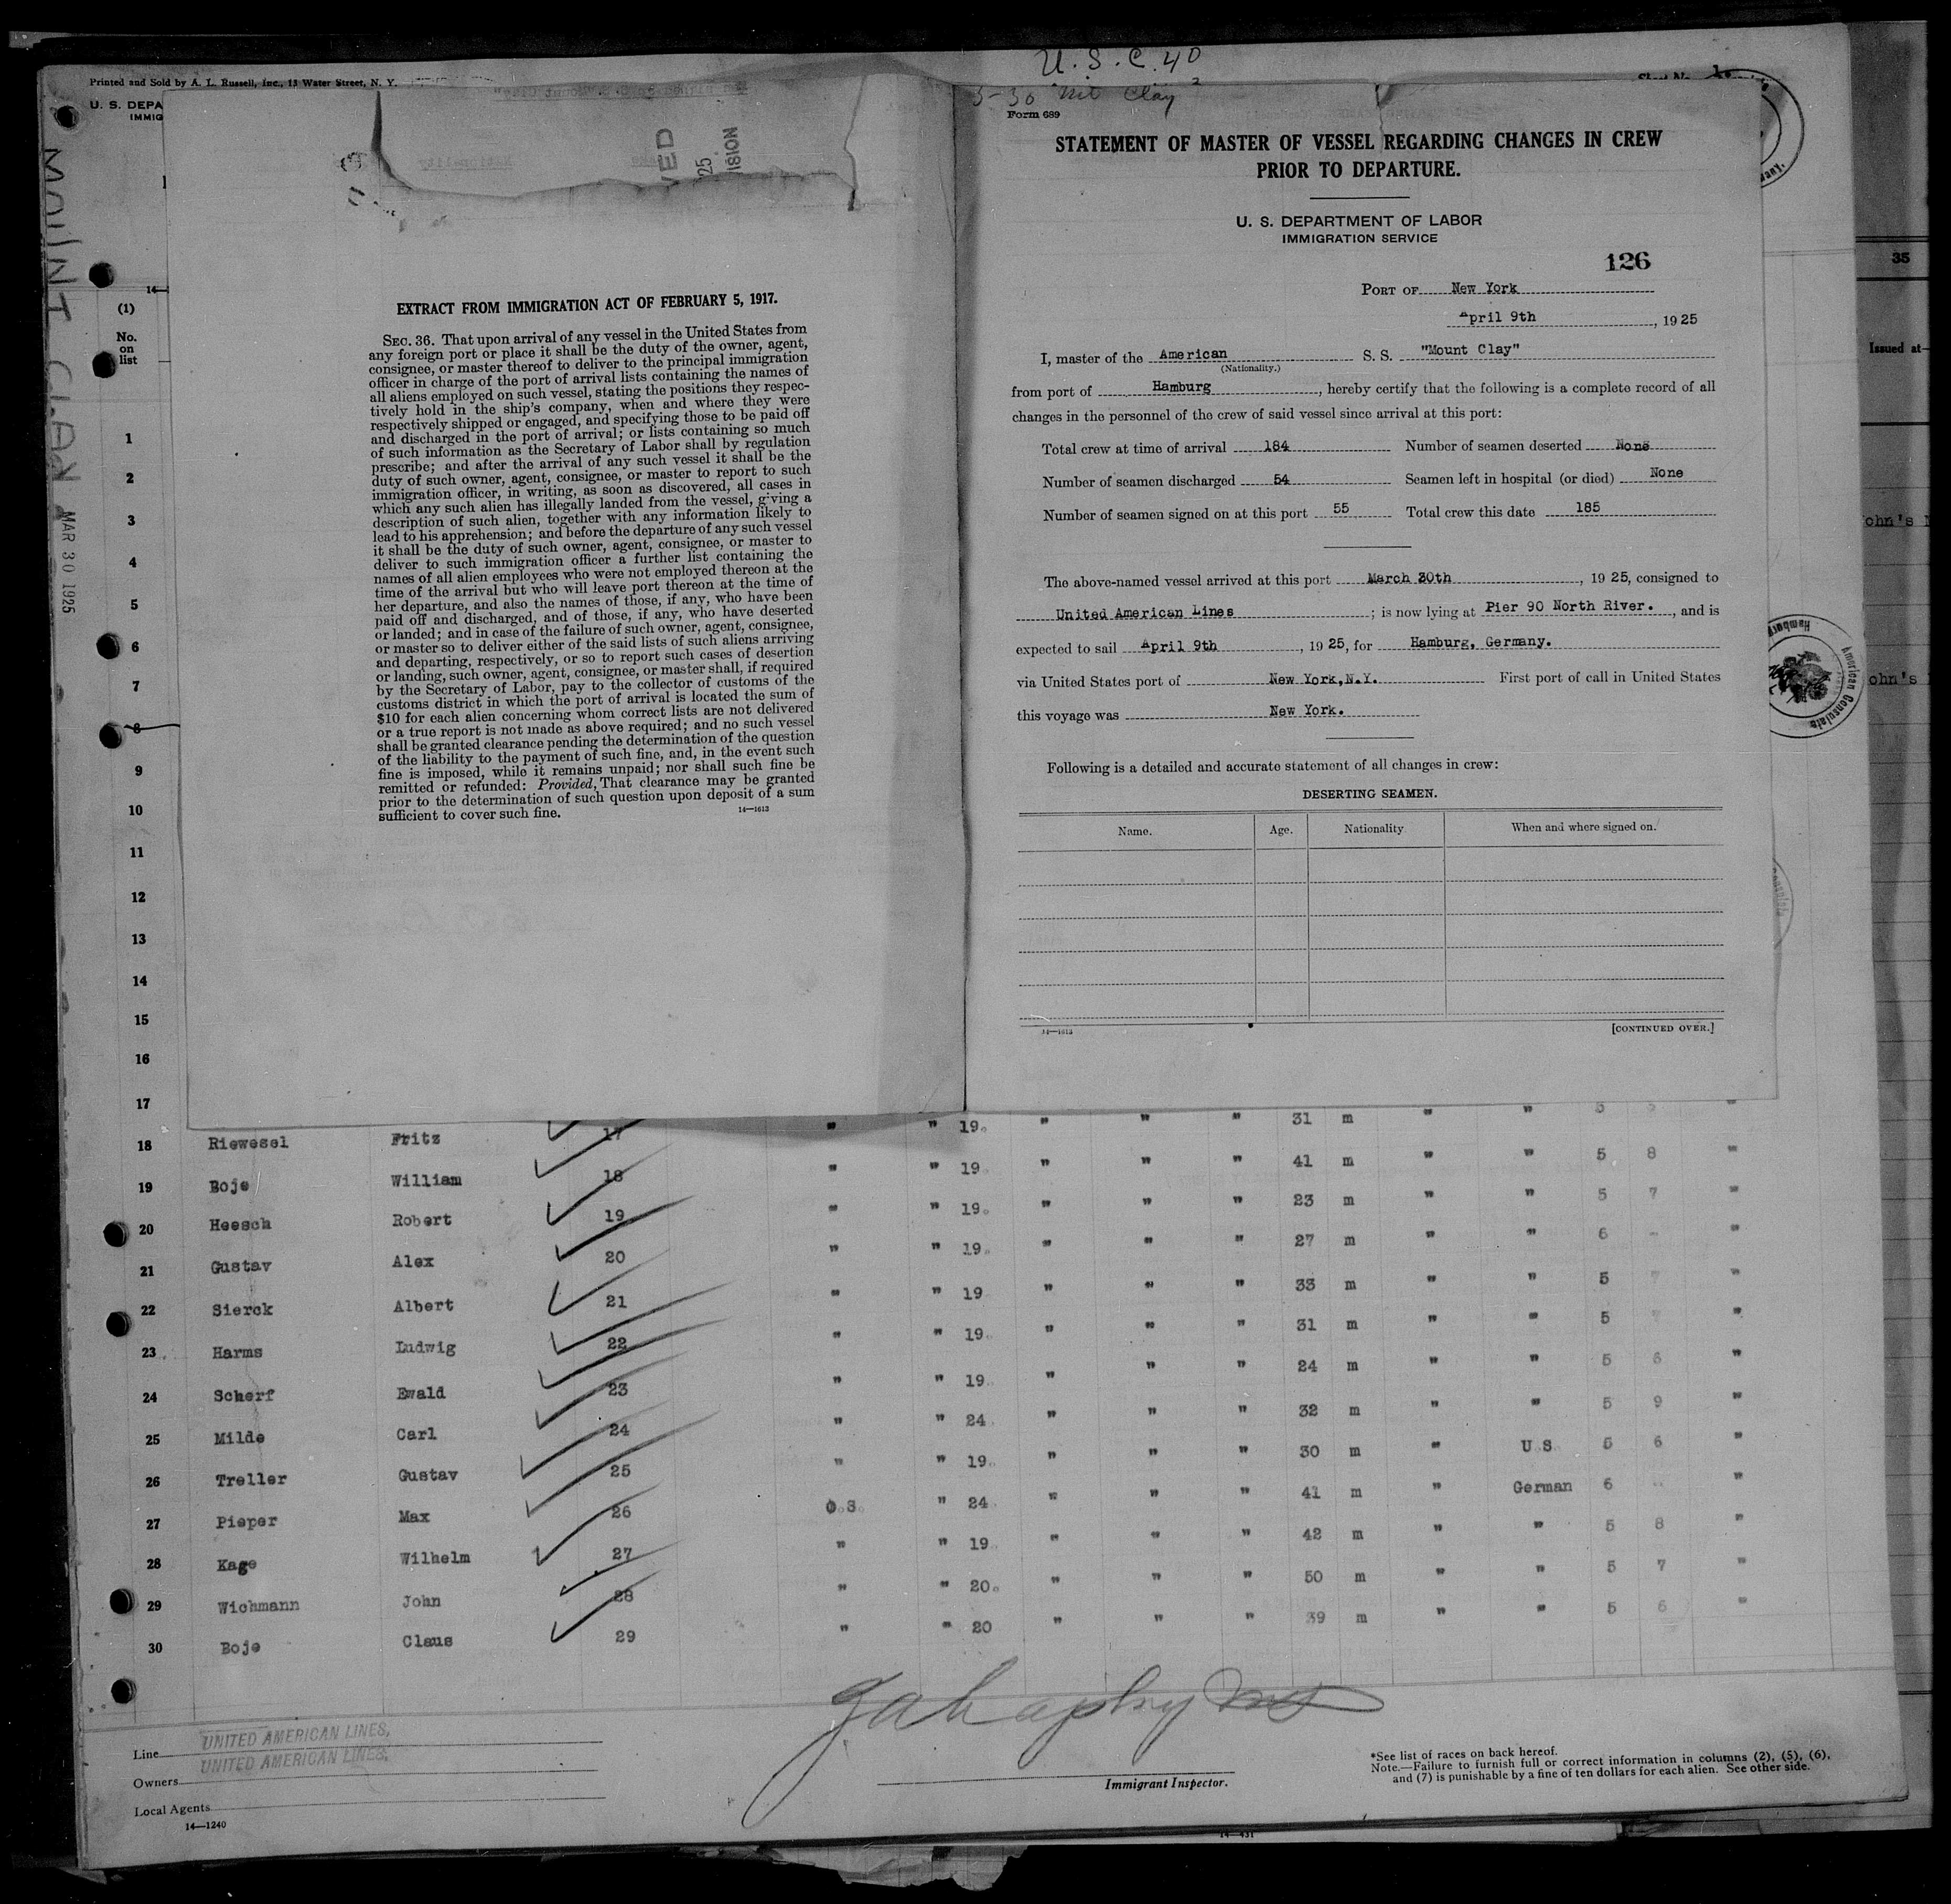 U. S. C. 40
Printed and Sold by A. L. Russell, Inc., 13 Water Street, N. Y.
U. S. DEPA
IMMIG
MOUNT CLAY
MAR 30 1925
(1)
No.
on
list
EXTRACT FROM IMMIGRATION ACT OF FEBRUARY 5, 1917.
SEC. 36. That upon arrival of any vessel in the United States from
any foreign port or place it shall be the duty of the owner, agent,
consignee, or master thereof to deliver to the principal immigration
officer in charge of the port of arrival lists containing the names of
all aliens employed on such vessel, stating the positions they respec-
tively hold in the ship's company, when and where they were
respectively shipped or engaged, and specifying those to be paid off
and discharged in the port of arrival; or lists containing so much
of such information as the Secretary of Labor shall by regulation
prescribe; and after the arrival of any such vessel it shall be the
duty of such owner, agent, consignee, or master to report to such
immigration officer, in writing, as soon as discovered, all cases in
which any such alien has illegally landed from the vessel, giving a
description of such alien, together with any information likely to
lead to his apprehension; and before the departure of any such vessel
it shall be the duty of such owner, agent, consignee, or master to
deliver to such immigration officer a further list containing the
names of all alien employees who were not employed thereon at the
time of the arrival but who will leave port thereon at the time of
her departure, and also the names of those, if any, who have been
paid off and discharged, and of those, if any, who have deserted
or landed; and in case of the failure of such owner, agent, consignee,
or master so to deliver either of the said lists of such aliens arriving
and departing, respectively, or so to report such cases of desertion
or landing, such owner, agent, consignee, or master shall, if required
by the Secretary of Labor, pay to the collector of customs of the
customs district in which the port of arrival is located the sum of
$10 for each alien concerning whom correct lists are not delivered
or a true report is not made as above required; and no such vessel
shall be granted clearance pending the determination of the question
of the liability to the payment of such fine, and, in the event such
fine is imposed, while it remains unpaid; nor shall such fine be
remitted or refunded: Provided, That clearance may be granted
prior to the determination of such question upon deposit of a sum
sufficient to cover such fine.
14—1613
3-30 Mt Clay
Form 689
STATEMENT OF MASTER OF VESSEL REGARDING CHANGES IN CREW
PRIOR TO DEPARTURE.
U. S. DEPARTMENT OF LABOR
IMMIGRATION SERVICE
126
PORT OF New York
April 9th, 1925
I, master of the American S. S. "Mount Clay"
(Nationality.)
from port of Hamburg, hereby certify that the following is a complete record of all
changes in the personnel of the crew of said vessel since arrival at this port:
Total crew at time of arrival 184 Number of seamen deserted None
Number of seamen discharged 54 Seamen left in hospital (or died) None
Number of seamen signed on at this port 55 Total crew this date 185
The above-named vessel arrived at this port March 30th, 1925, consigned to
United American Lines; is now lying at Pier 90 North River., and is
expected to sail April 9th, 1925, for Hamburg, Germany.
via United States port of New York, N.Y. First port of call in United States
this voyage was New York.
Following is a detailed and accurate statement of all changes in crew:
DESERTING SEAMEN.
Name. Age. Nationality When and where signed on.
14—1613 [CONTINUED OVER.]
35
Issued at
ohn's
ohn's
American Consulate
Hamburg
1
2
3
4
5
6
7
8
9
10
11
12
13
14
15
16
17
18 Riewesel Fritz 17 " " 19. " " " 31 m " " 5 5 "
19 Boje William 18 " " 19 " " " 41 m " " 5 8 "
20 Heesch Robert 19 " " 19. " " " 23 m " " 5 7 "
21 Gustav Alex 20 " " 19. " " " 27 m " " 6 - "
22 Sierck Albert 21 " " 19 " " " 33 m " " 5 7 "
23 Harms Ludwig 22 " " 19. " " " 31 m " " 5 "
24 Scherf Ewald 23 " " 19. " " " 24 m " " 5 6 "
25 Milde Carl 24 " " 24. " " " 32 m " " 5 9 "
26 Treller Gustav 25 " " 19. " " " 30 m " U.S. 5 6 "
27 Pieper Max 26 O.S. " 24. " " " 41 m " German 6 - "
28 Kage Wilhelm 27 " " 19. " " " 42 m " " 5 8 "
29 Wichmann John 28 " " 20. " " " 50 m " " 5 7 "
30 Boje Claus 29 " " 20 " " " 39 m " " 5 6 "
Line UNITED AMERICAN LINES,
Owners UNITED AMERICAN LINES,
Local Agents
14—1240
Immigrant Inspector.
*See list of races on back hereof.
Note.—Failure to furnish full or correct information in columns (2), (5), (6),
and (7) is punishable by a fine of ten dollars for each alien. See other side.